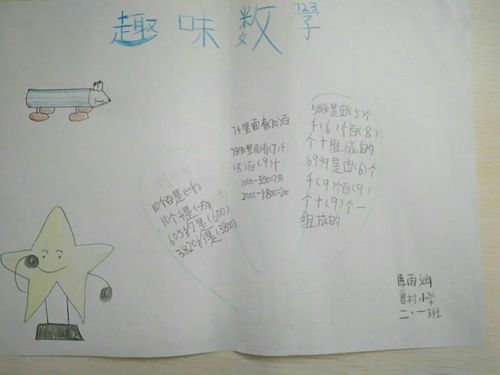 趣味数学
123
10个百是(一千)
10个千是(一万)
605约是(600)
3820约是(3800)
7千里面有(70)百
7890里面有(7)千
(8)百(9)十
1000-350=750
2000-1800=200
5680是由(5)个
千(6)个百(8)
个十组成的
6999是由(6)个
千(9)个百(9)
个十(9)个一
组成的
陈雨涵
曹村小学
二、一班